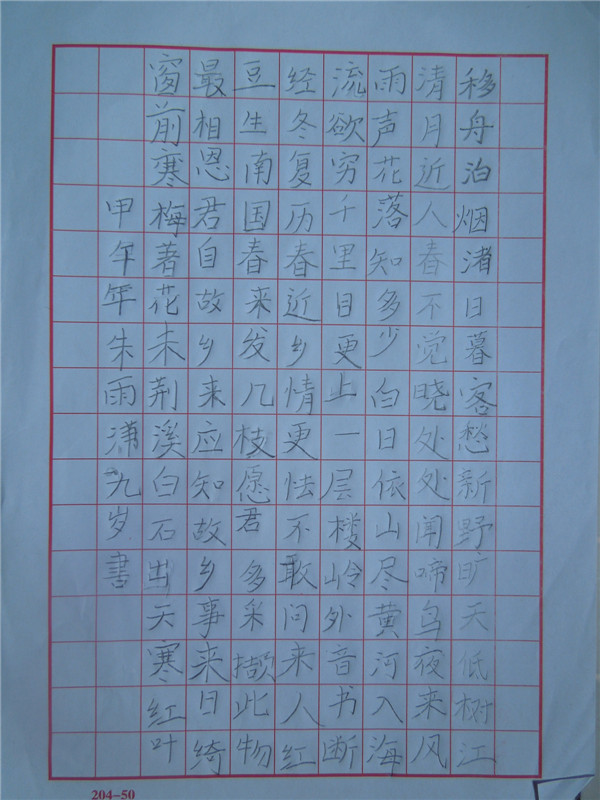 移舟泊烟渚日暮客愁新野旷天低树江
清月近人春不觉晓处处闻啼鸟夜来风
雨声花落知多少白日依山尽黄河入海
流欲穷千里目更上一层楼岭外音书断
经冬复历春近乡情更怯不敢问来人红
豆生南国春来发几枝愿君多采撷此物
最相恩君自故乡来应知故乡事来日绮
窗前寒梅著花未荆溪白石出天寒红叶
甲午年朱雨九岁書
204-50